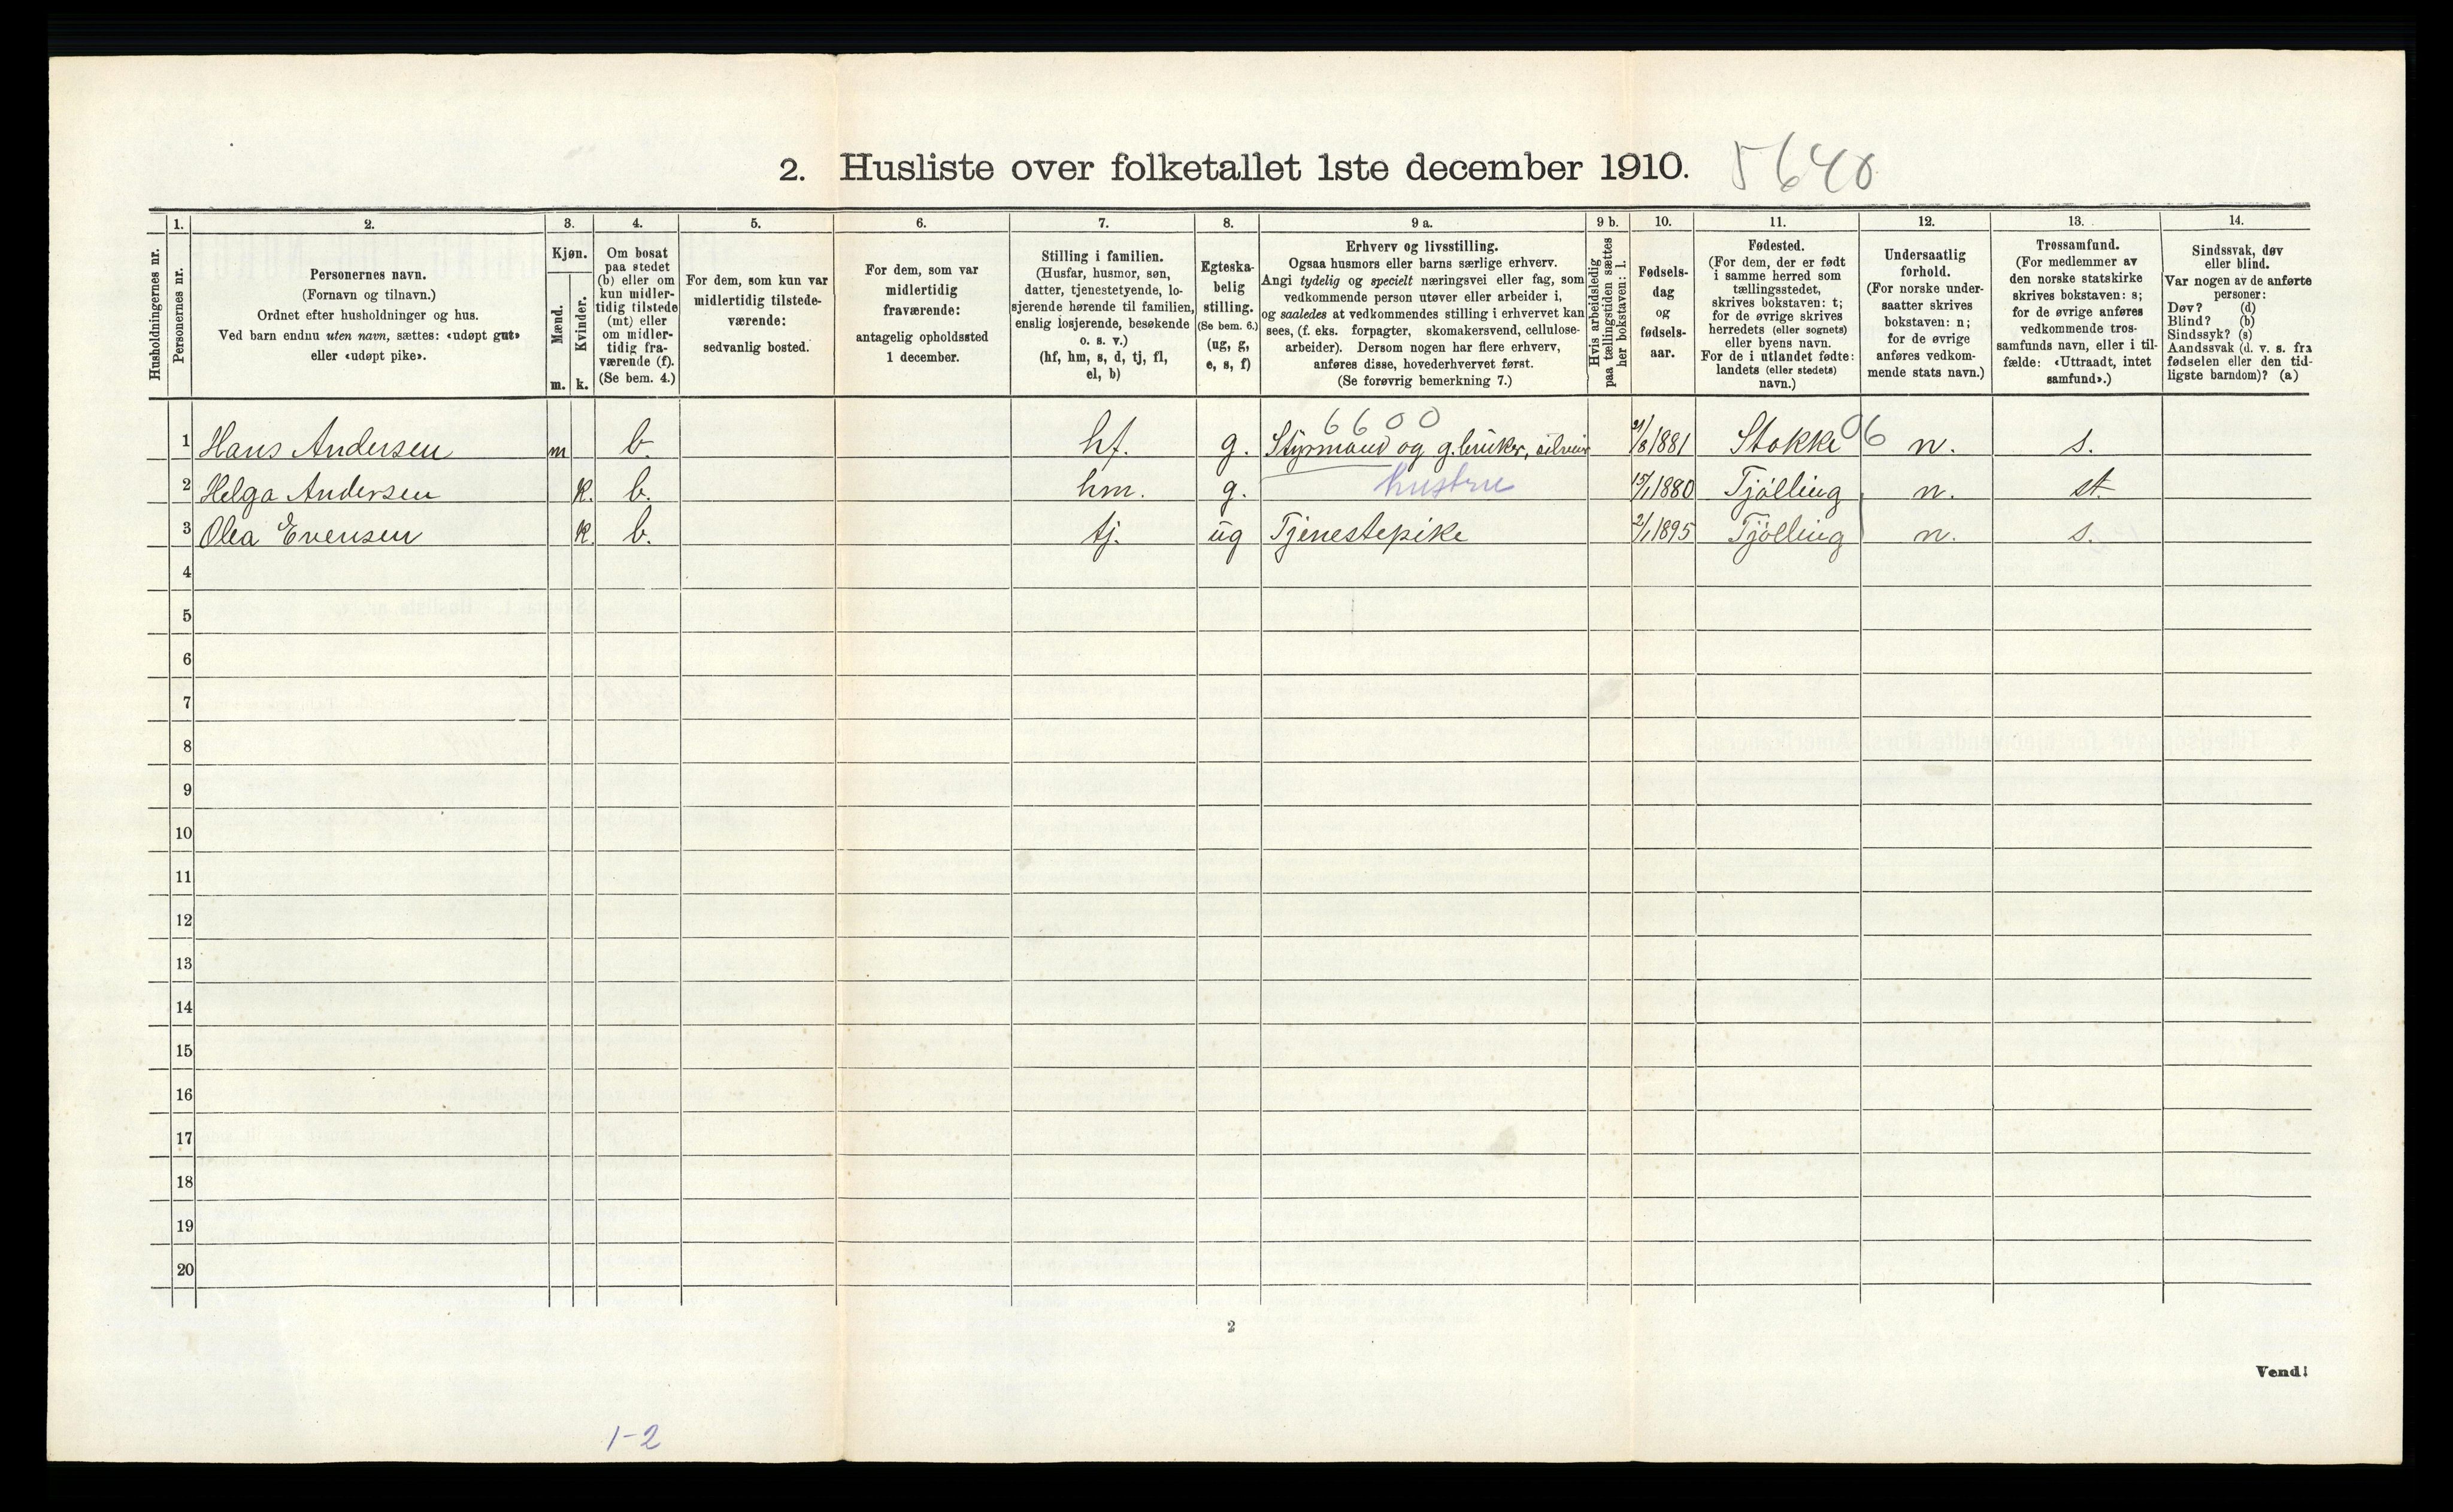 2. Husliste over folketallet 1ste december 1910. 5640
Husholdningernes nr.
1.
Personernes nr.
2.
Personernes navn.
(Fornavn og tilnavn.)
Ordnet efter husholdninger og hus.
Ved barn endnu uten navn, sættes: «udøpt gut»
eller «udøpt pike».
3.
Kjøn.
Mænd.
Kvinder.
m. k.
4.
Om bosat
paa stedet
(b) eller om
kun midler-
tidig tilstede
(mt) eller
om midler-
tidig fra-
værende (f).
(Se bem. 4.)
5.
For dem, som kun var
midlertidig tilstede-
værende:
sedvanlig bosted.
6.
For dem, som var
midlertidig
fraværende:
antagelig opholdssted
1 december.
7.
Stilling i familien.
(Husfar, husmor, søn,
datter, tjenestetyende, lo-
sjerende hørende til familien,
enslig losjerende, besøkende
o. s. v.)
(hf, hm, s, d, tj, fl,
el, b)
8.
Egteska-
belig
stilling.
(Se bem. 6.)
(ug, g,
e, s, f)
9 a.
Erhverv og livsstilling.
Ogsaa husmors eller barns særlige erhverv.
Angi tydelig og specielt næringsvei eller fag, som
vedkommende person utøver eller arbeider i,
og saaledes at vedkommendes stilling i erhvervet kan
sees, (f. eks. forpagter, skomakersvend, cellulose-
arbeider). Dersom nogen har flere erhverv,
anføres disse, hovederhvervet først.
(Se forøvrig bemerkning 7.)
9 b.
Hvis arbeidsledig
paa tællingstiden sættes
her bokstaven: l.
10.
Fødsels-
dag
og
fødsels-
aar.
11.
Fødested.
(For dem, der er født
i samme herred som
tællingsstedet,
skrives bokstaven: t;
for de øvrige skrives
herredets (eller sognets)
eller byens navn.
For de i utlandet fødte:
landets (eller stedets)
navn.)
12.
Undersaatlig
forhold.
(For norske under-
saatter skrives
bokstaven: n;
for de øvrige
anføres vedkom-
mende stats navn.)
13.
Trossamfund.
(For medlemmer av
den norske statskirke
skrives bokstaven: s;
for de øvrige anføres
vedkommende tros-
samfunds navn, eller i til-
fælde: «Uttraadt, intet
samfund».)
14.
Sindssvak, døv
eller blind.
Var nogen av de anførte
personer:
Døv? (d)
Blind? (b)
Sindssyk? (s)
Aandssvak (d. v. s. fra
fødselen eller den tid-
ligste barndom)? (a)
6600
1 Hans Andersen m b. hf. g. Styrmand og g.bruker, 21/8 1881 Stokke 06 n. s.
2 Helga Andersen k. b. hm. g. hustru 15/1 1880 Tjølling n. st
3 Olea Evensen k. b. tj. ug Tjenestepike 2/1 1895 Tjølling n. s.
4
5
6
7
8
9
10
11
12
13
14
15
16
17
18
19
20
2
Vend!
1-2